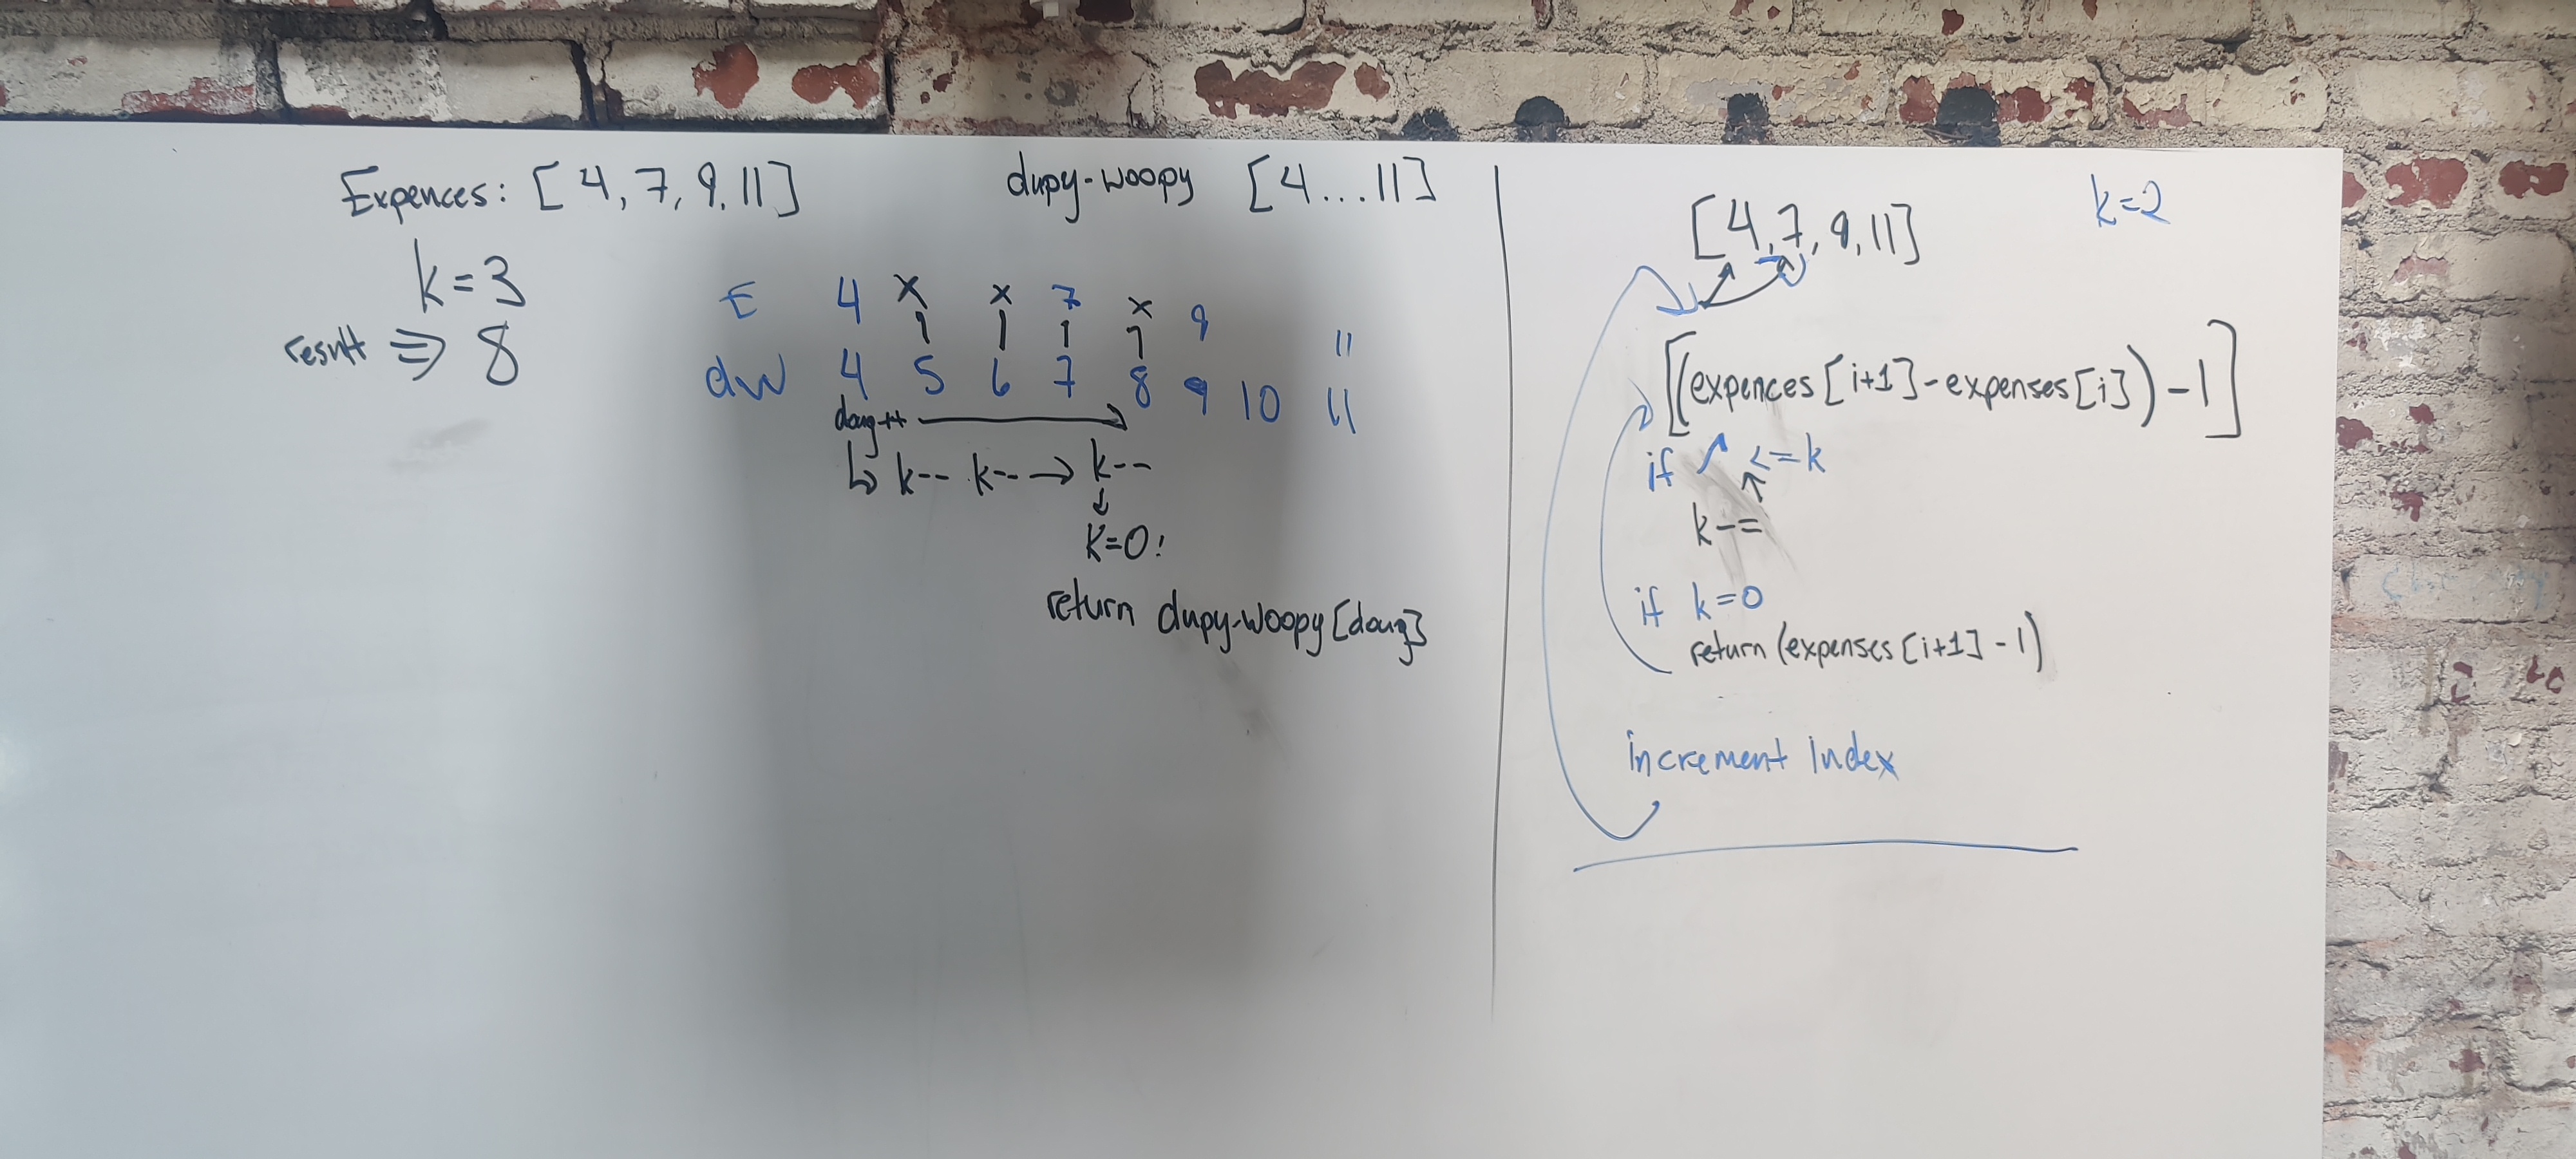 Expences: [4, 7, 9, 11]
k=3
result => 8
dupy-woopy [4...11]
E 4 x x 7 x 9 11
dw 4 5 6 7 8 9 10 11
doug++
↳ k-- k-- → k--
↓
K=0!
return dupy-woopy[doug]
[4, 7, 9, 11]
k=2
[(expences[i+1]-expenses[i])-1]
if ↗ <=k
k-=
if k=0
return (expenses[i+1]-1)
increment Index